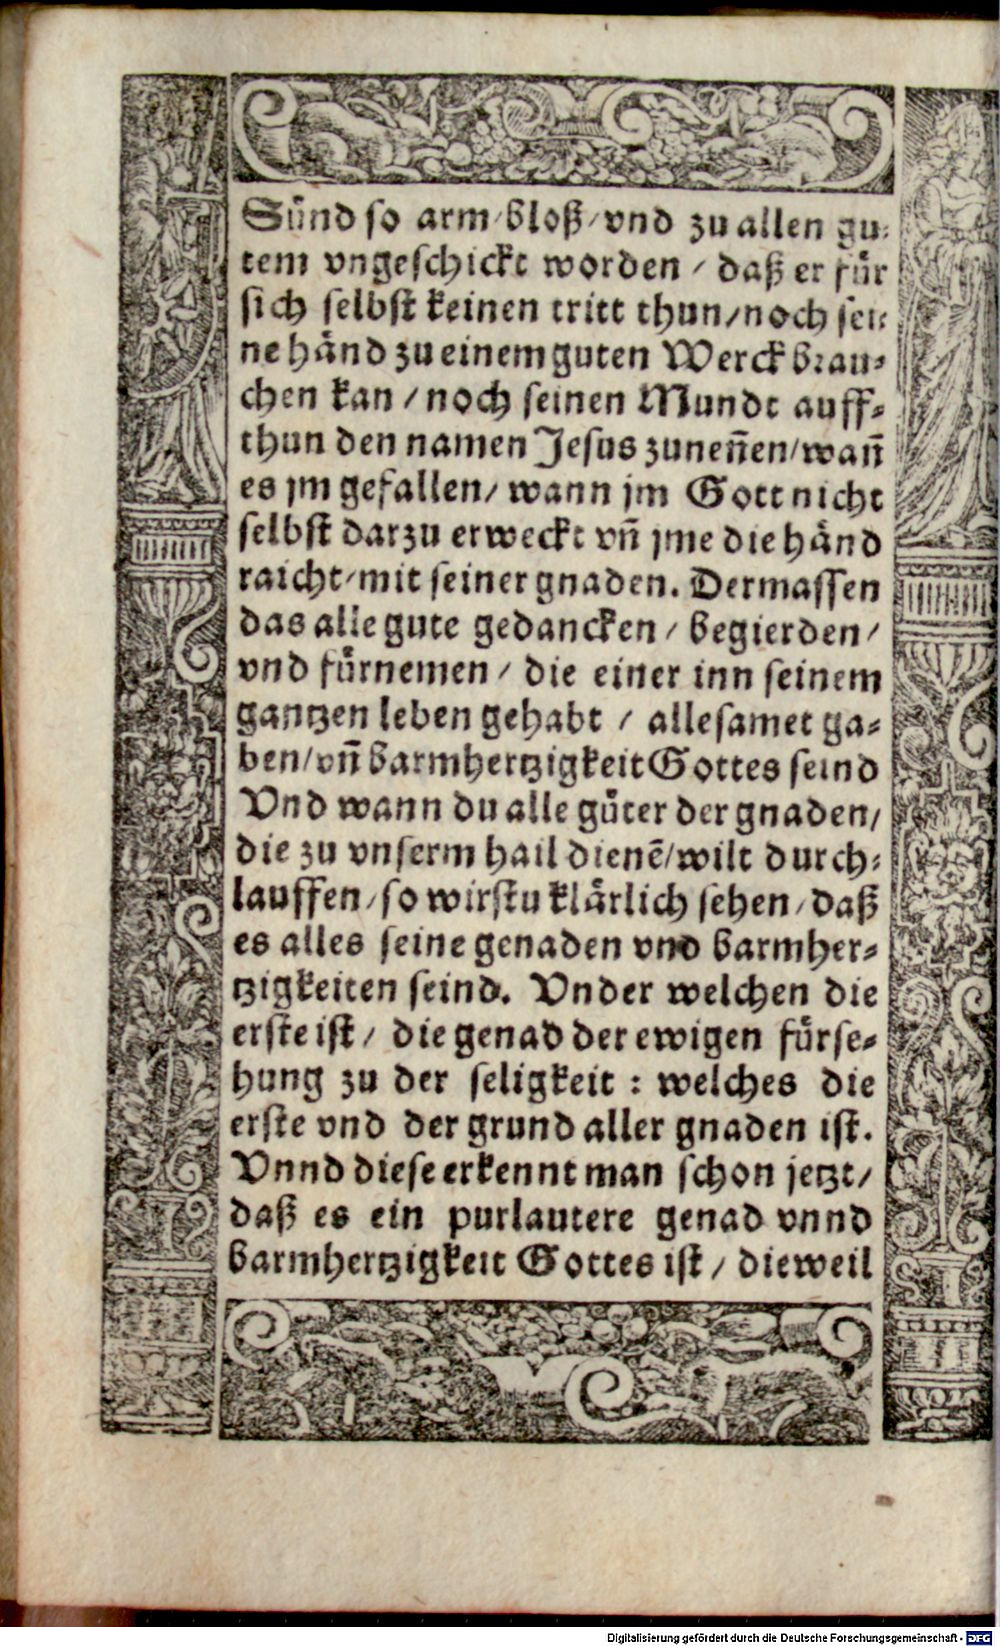 Sünd so arm / bloß / vnd zu allen gu-
tem vngeschickt worden / daß er für
sich selbst keinen tritt thun / noch sei-
ne händ zu einem guten Werck brau-
chen kan / noch seinen Mundt auff-
thun den namen Jesus zuneñen / wañ
es jm gefallen / wann jm Gott nicht
selbst darzu erweckt vñ jme die händ
raicht / mit seiner gnaden. Dermassen
das alle gute gedancken / begierden /
vnd fürnemen / die einer inn seinem
gantzen leben gehabt / allesamet ga-
ben / vñ barmhertzigkeit Gottes seind
Vnd wann du alle güter der gnaden /
die zu vnserm hail dienē / wilt durch-
lauffen / so wirstu klärlich sehen / daß
es alles seine genaden vnd barmher-
tzigkeiten seind. Vnder welchen die
erste ist / die genad der ewigen fürse-
hung zu der seligkeit : welches die
erste vnd der grund aller gnaden ist.
Vnnd diese erkennt man schon jetzt /
daß es ein purlautere genad vnnd
barmhertzigkeit Gottes ist / dieweil
Digitalisierung gefördert durch die Deutsche Forschungsgemeinschaft - DFG